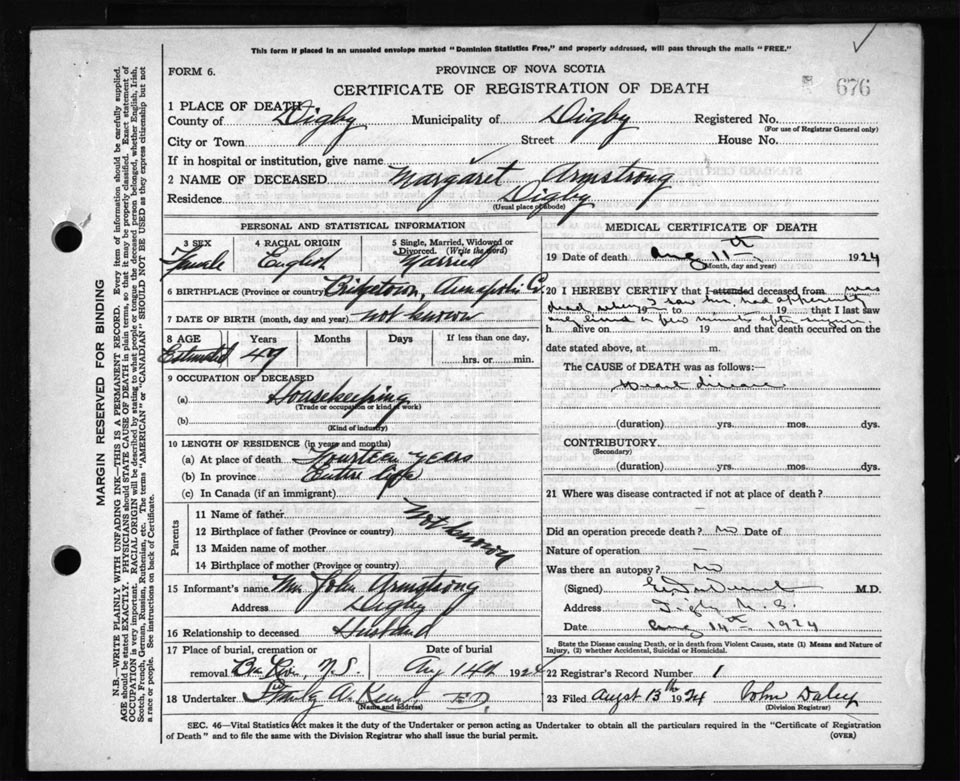 This form if placed in an unsealed envelope marked "Dominion Statistics Free," and properly addressed, will pass through the mails "FREE."
FORM 6.
PROVINCE OF NOVA SCOTIA
CERTIFICATE OF REGISTRATION OF DEATH
676
1 PLACE OF DEATH
County of Digby Municipality of Digby Registered No.
(For use of Registrar General only)
City or Town Street House No.
If in hospital or institution, give name
2 NAME OF DECEASED Margaret Armstrong
Residence Digby
(Usual place of abode)
PERSONAL AND STATISTICAL INFORMATION
3 SEX Female
4 RACIAL ORIGIN English
5 Single, Married, Widowed or Divorced. (Write the word) Married
6 BIRTHPLACE (Province or country) Bridgetown, Annapolis Co.
7 DATE OF BIRTH (month, day and year) not known
8 AGE Years Months Days If less than one day,
Estimated 49 hrs. or min.
9 OCCUPATION OF DECEASED
(a) Housekeeping
(Trade or occupation or kind of work)
(b)
(Kind of industry)
10 LENGTH OF RESIDENCE (in years and months)
(a) At place of death Fourteen years
(b) In province Entire life
(c) In Canada (if an immigrant)
Parents
11 Name of father
12 Birthplace of father (Province or country)
13 Maiden name of mother
14 Birthplace of mother (Province or country)
Not known
15 Informant's name John Armstrong
Address Digby
16 Relationship to deceased Husband
17 Place of burial, cremation or Date of burial
removal N.S. Aug 14th 1924
18 Undertaker
(Name and address)
MEDICAL CERTIFICATE OF DEATH
19 Date of death Aug 11th 1924
(Month, day and year)
20 I HEREBY CERTIFY that I attended deceased from was
dead when I saw her, had apparently 19 to 19 that I last saw
h alive on 19 and that death occurred on the
date stated above, at m.
The CAUSE OF DEATH was as follows:—
Heart disease
(duration) yrs. mos. dys.
CONTRIBUTORY
(Secondary)
(duration) yrs. mos. dys.
21 Where was disease contracted if not at place of death?
Did an operation precede death? no Date of
Nature of operation —
Was there an autopsy? no
(Signed) M.D.
Address Digby N.S.
Date Aug 14th 1924
State the Disease causing Death, or in death from Violent Causes, state (1) Means and Nature of
Injury, (2) whether Accidental, Suicidal or Homicidal.
22 Registrar's Record Number 1
23 Filed August 13th 1924 John Daley
(Division Registrar)
SEC. 46—Vital Statistics Act makes it the duty of the Undertaker or person acting as Undertaker to obtain all the particulars required in the "Certificate of Registration
of Death" and to file the same with the Division Registrar who shall issue the burial permit. (OVER)
MARGIN RESERVED FOR BINDING
N.B.—WRITE PLAINLY WITH UNFADING INK—THIS IS A PERMANENT RECORD. Every item of information should be carefully supplied.
AGE should be stated EXACTLY. PHYSICIANS should STATE CAUSE OF DEATH in plain terms, so that it may be properly classified. Exact statement of
OCCUPATION is very important. RACIAL ORIGIN will be described by stating to what people or tongue the deceased person belonged, whether English, Irish,
Scotch, French, German, Russian, Ruthenian, etc. The terms "AMERICAN" or "CANADIAN" SHOULD NOT BE USED as they express citizenship but not
a race or people. See instructions on back of Certificate.